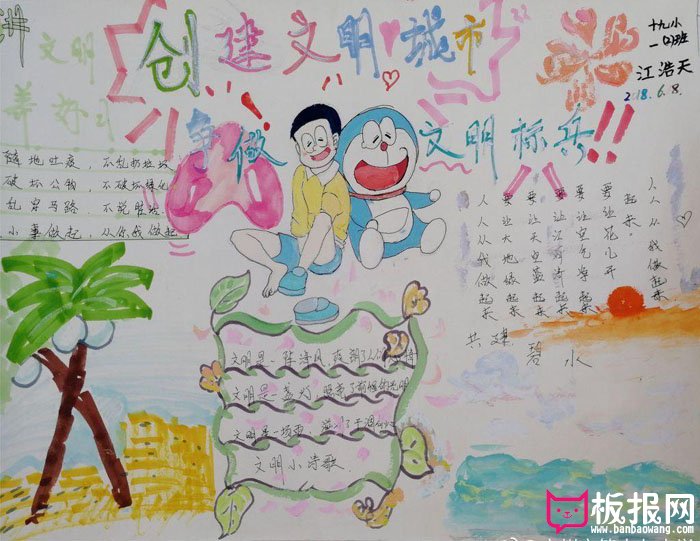 创建文明城市
争做 文明标兵!!
十九小
一(4)班
江浩天
2018.6.8.
讲
文明
养好习
随地吐痰，不乱扔垃圾
破坏公物，不破坏绿化
乱穿马路，不说脏话
小事做起，从你我做起
人人从我做起来
起来。
要让花儿开
要让空气净起来
要让河清起来
要让天空蓝起来
要让大地绿起来
人人从我做起来
共建碧水
文明是一阵清风
文明是一盏灯
文明是一场雨
文明小诗歌
板报网
www.banbaowang.com